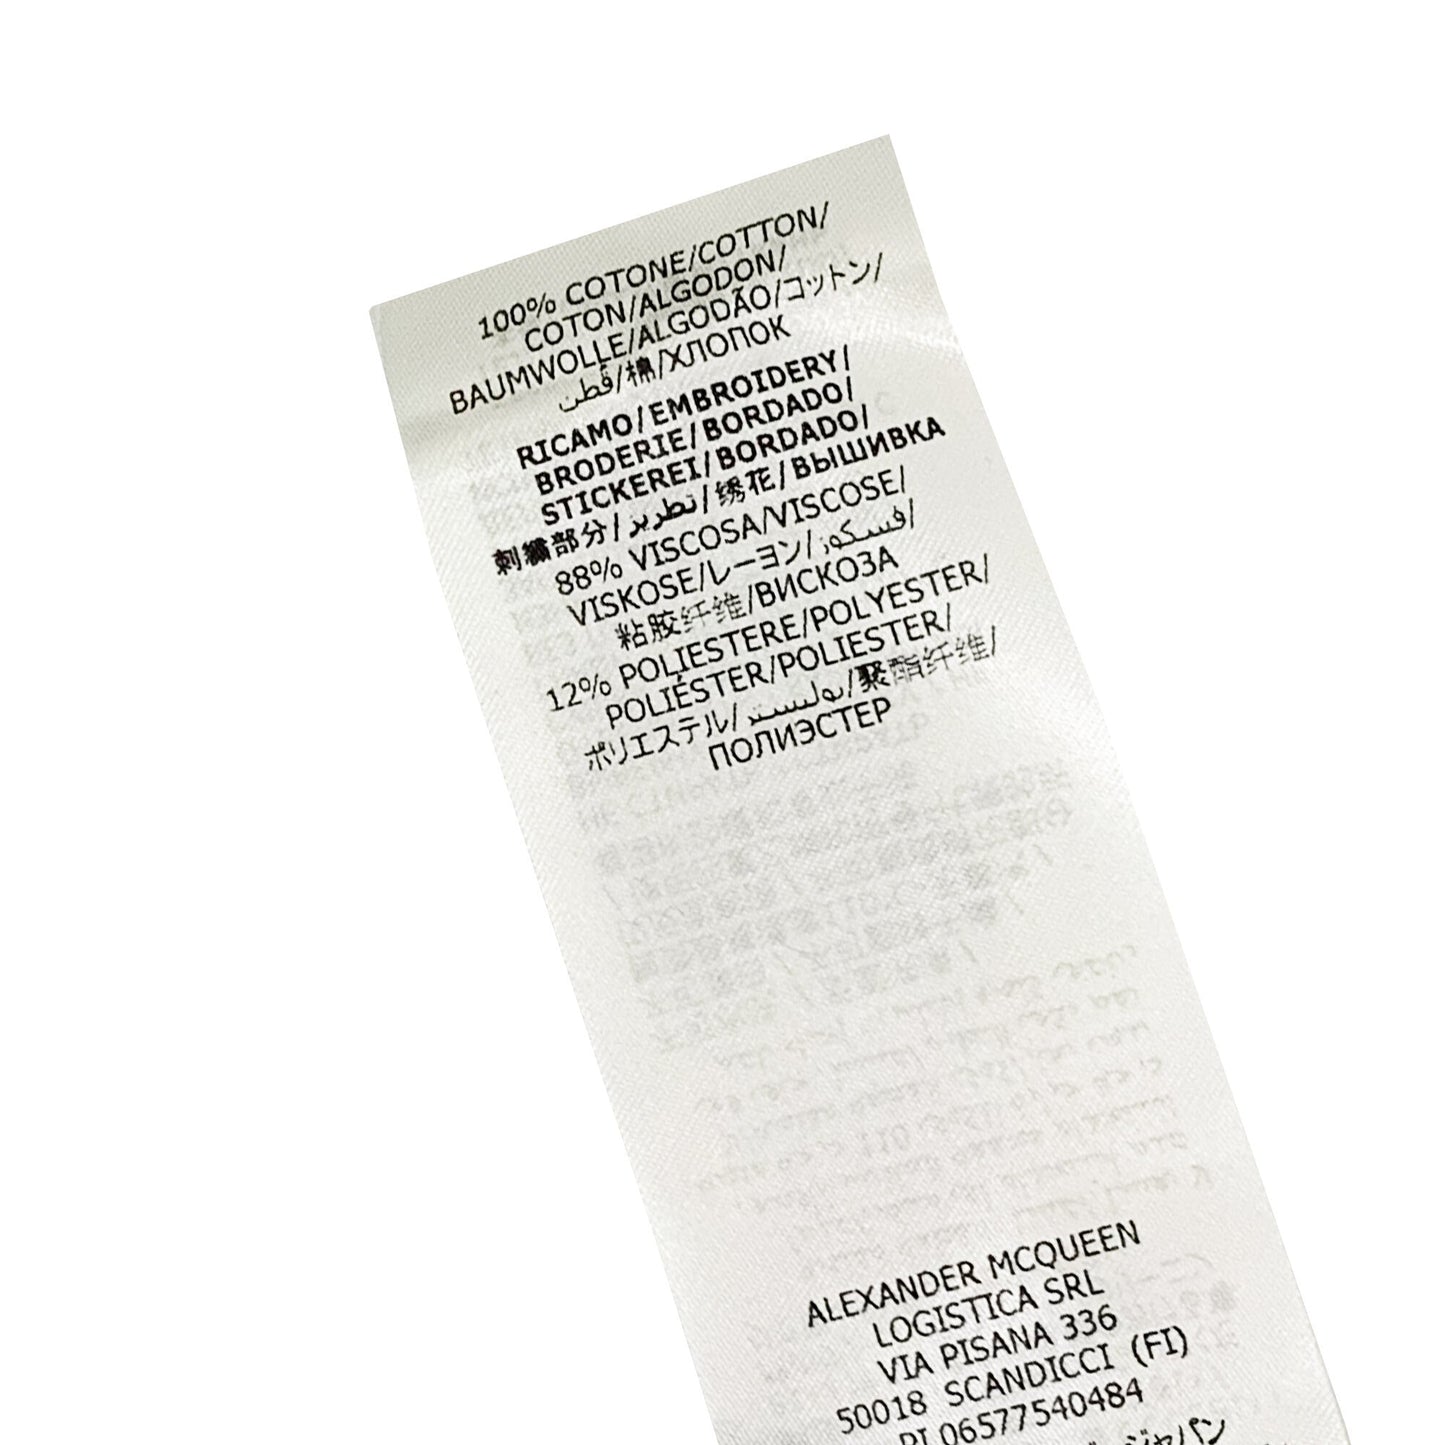 100% COTONE/COTTON/
COTON/ALGODON/
BAUMWOLLE/ALGODÃO/コットン/
قُطن/棉/ХЛОПОК
RICAMO/EMBROIDERY/
BRODERIE/BORDADO/
STICKEREI/BORDADO/
刺繍部分/تطريز/绣花/ВЫШИВКА
88% VISCOSA/VISCOSE/
VISKOSE/レーヨン/فسكوز/
粘胶纤维/ВИСКОЗА
12% POLIESTERE/POLYESTER/
POLIÉSTER/POLIESTER/
ポリエステル/بوليستر/聚酯纤维/
ПОЛИЭСТЕР
ALEXANDER MCQUEEN
LOGISTICA SRL
VIA PISANA 336
50018 SCANDICCI (FI)
PI 06577540484
ジャパン